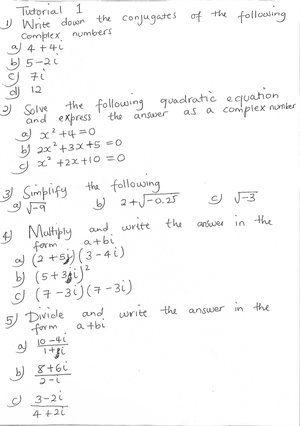 Tutorial 1
1) Write down the conjugates of the following
complex numbers
a) 4 + 4i
b) 5 - 2i
c) 7i
d) 12
2) Solve the following quadratic equation
and express the answer as a complex number
a) x² + 4 = 0
b) 2x² + 3x + 5 = 0
c) x² + 2x + 10 = 0
3) Simplify the following
a) √-9 b) 2 + √-0.25 c) √-3
4) Multiply and write the answer in the
form a+bi
a) (2 + 5i)(3 - 4i)
b) (5 + 3i)²
c) (7 - 3i)(7 - 3i)
5) Divide and write the answer in the
form a+bi
a) 10-4i
1+i
b) 8+6i
2-i
c) 3-2i
4+2i